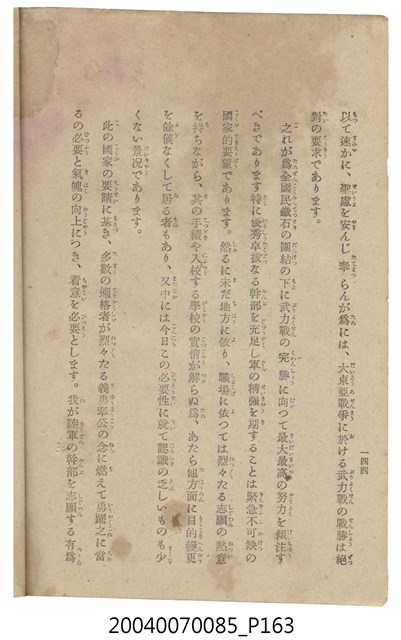 一四四
以て速かに、聖慮を安んじ奉らんが爲には、大東亞戰爭に於ける武力戰の戰勝は絕
對の要求であります。
之れが爲全國民鐵石の團結の下に武力戰の完勝に向つて最大最高の努力を傾注す
べきであります特に優秀卓拔なる幹部を充足し軍の精強を期することは緊急不可缺の
國家的要望であります。然るに未だ地方に依り、職場に依つては烈々たる志願の熱意
を持ちながら、其の手續や入校する學校の實情が解らぬ爲、あたら他方面に目的變更
を餘儀なくして居る者もあり、又中には今日この必要性に就て認識の乏しいものも少
くない景況であります。
此の國家の要請に基き、多數の適格者が烈々たる義勇奉公の念に燃えて勇躍之に當
るの必要と氣魄の向上につき、着意を必要とします。我が陸軍の幹部を志願する有爲
20040070085_P163